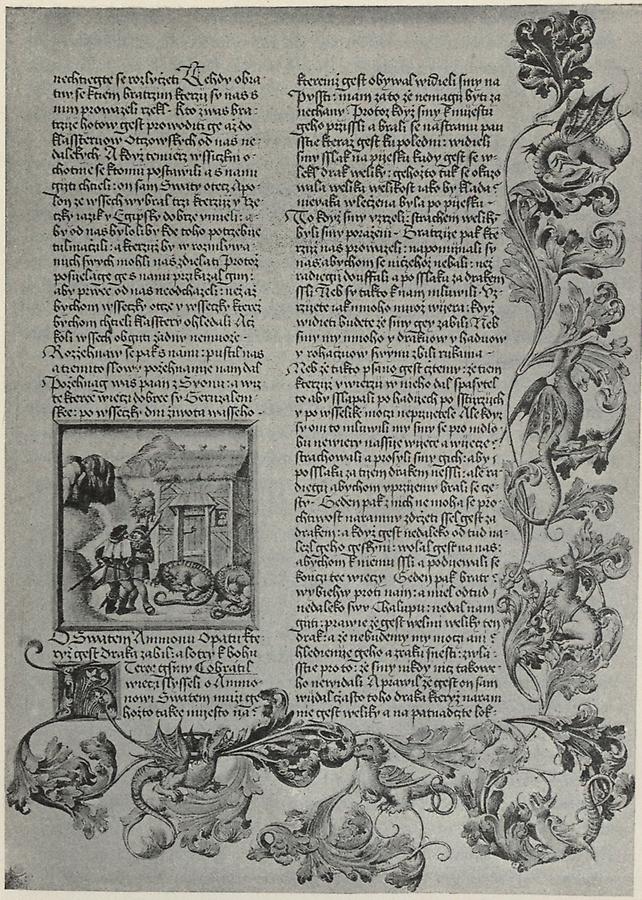 nechtiegte se rozlyčeti Tehdy obra
tiw se ktiem bratrzim kterzij su nas s
nim prowazeli rzekl · kto z was bra ·
trzie hotow gest prowoditi ge až do
klassterow Otczowskych od nas ne ·
dalekych A když
chotne se ktomu postawili a s nami
gijti chtieli : on sam Swaty otecz Apo ·
lon ze wssech wybral trzi kterzij rze
czky iazik y Egipsky dobrze umieli : a ·
by od nas byloli by kde toho potrzebie
tulmaczili : a kterzij by w rozmluwa ·
nich swych mohli nas zdielati Protož
posijelage ge s nami przikazal gim :
aby prwee od nas neodchazeli : než až
bychom wssecky otcze y wssecky kterez
bychom chtieli klasstery ohledali Acž
koli wssech obgiti žadny nemuože ·
Rozžehnaw se pak s nami : pustil nas
a tiemito slowy požehnanie nam dal
Požehnag was pan z Syonu : a wiz
te kteree wieczi dobree su Geruzalem ·
skee : po wssecky dni žiwota wasseho ·
O Swatem Ammonu Opatu kte ·
ryž gest draka zabil : a lotry k bohu
obratil
wiecz slysseli o Ammo ·
nowi Swatem muži ge
hožto takee miesto na
kteremž gest obywal widieli smy na
Pussti : mam za to že nemagij byti za
nechany · Protož když smy k miestu
geho przissli a brali se na stranu pau
sstie kteraz gest ku poledni : widieli
smy sslak na piesku kudy gest se w ·
lekl drak weliky : gehožto tak se okazo
wala welika welikost iako by klada
nieyaka wleczena byla po piesku ·
To když smy vzrzeli : strachem welikym
byli smy poraženi · Bratrzie pak kte ·
rzijž nas prowazeli : napominali su
nas abychom se niczehož nebali : nez
radiegi douffali a po sslaku za drakem
ssli Neb su takto k nam mluwili · Vz ·
rzijete iak mnoho muož wijera : když
widieti budete že smy gey zabili Neb
smy my mnoho y drakuow y haduow
y rohaczuow swymi zbili rukama ·
Neb že takto psano gest cztemy : že tiem
kterzijž v wierzij w nieho dal spasytel
to aby sslapali po hadijech po sstijrzijch
y po wsselike moczi neprzietele Ale když
su oni to mluwili my smy se pro mdlo ·
bu newiery nassije wijecze a wijecze
strachowali a prosyli smy gich : aby
po sslaku za tijem drakem nessli : ale ra
diegi abychom vprzijemo brali se cze ·
sty · Geden pak z nich nemoha se pro
chtiwost naramnu zdrzeti ssel gest za
drakem : a když gest nedaleko od tud na ·
lezl geho geskyni : wolal gest na nas :
abychom k niemu ssli a podijewali se
konczi tee wieczy · Geden pak bratr
wybiehw proti nam : a miel od tud
nedaleko swu Chalupu : nedal nam
gijti : prawie že gest welmi weliky ten
drak : a že nebudemy my moczi ani
hlednutie geho a zraku snesti : zwla ·
sstie proto : že smy nikdy nicz takowe ·
ho newidali A prawil že gest on sam
widal często toho draka kteryž naram
nie gest weliky a na patnadczte lok ·